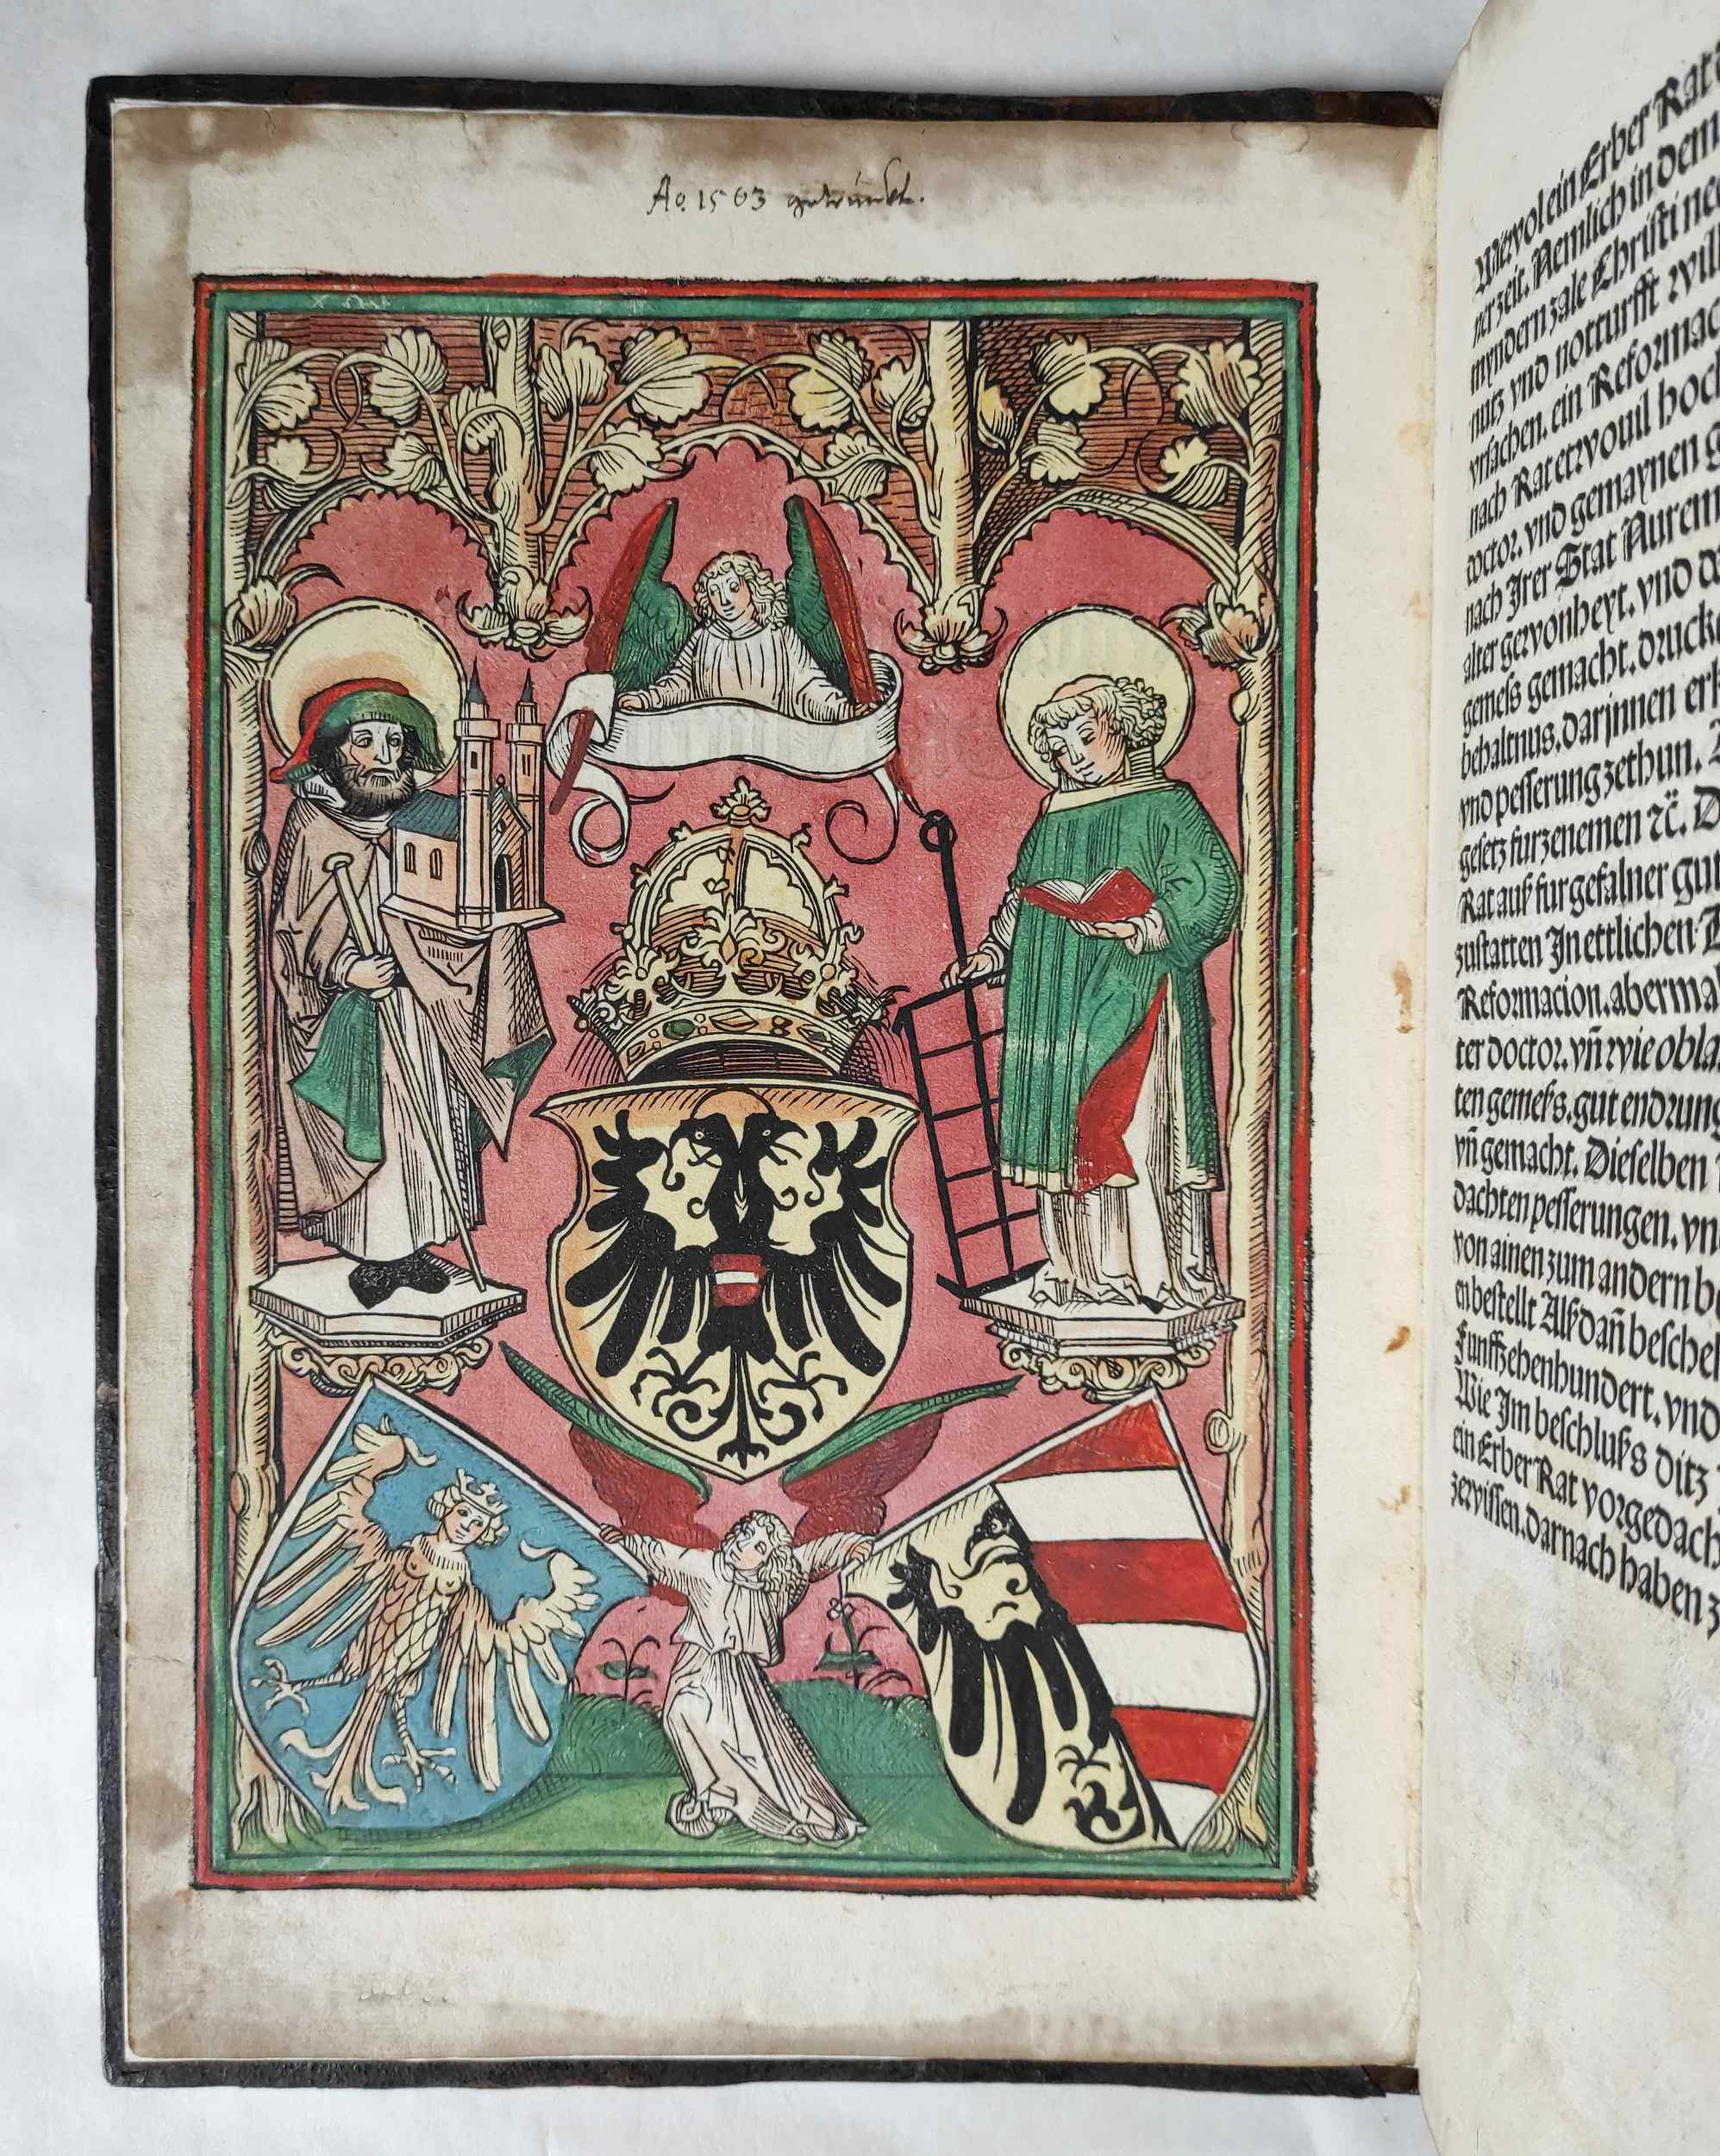 Ao. 1503 getruckt.
Wiewol ein Erber Rat
ner zeit. Nemlich in dem
myndern zale Christi
nutz vnd notturfft
vrsachen. ein Reformac
nach Rat etwouil hoch
doctor. vnd gemaynen
nach Irer Stat Nurem
alter gewonheyt. vnd
gemess gemacht. drucke
behaltnus. darjnnen
vnd pesserung zethun.
gesetz furzenemen ꝛc̈. D
Rat auß fur gefalner gut
zustatten In ettlichen
Reformacion. aberma
ter doctor. vn̄ wie obla
ten gemeß. gut endrung
vn̄ gemacht. Dieselben
dachten pesserungen. vn
von ainen zum andern be
en bestellt Alß dan̄ bescheh
Funffzehenhundert. vnd
Wie Im beschluß ditz
ein Erber Rat vorgedach
zewissen. darnach haben